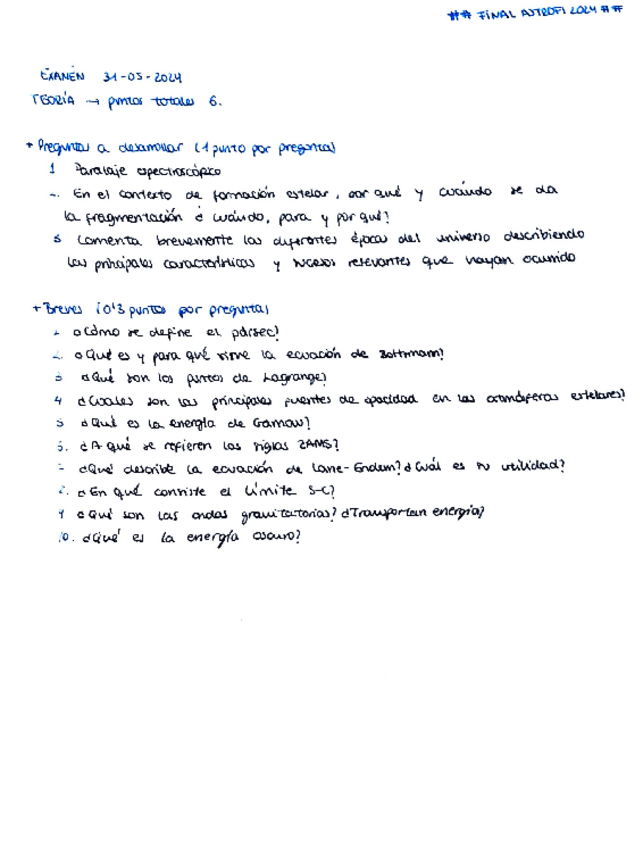 ## FINAL ASTROFI 2024 ##
EXAMEN 31-05-2024
TEORÍA → puntos totales 6.
+ Preguntas a desarrollar (1 punto por pregunta)
1 Paralaje espectroscópico
En el contexto de formación estelar, por qué y cuándo se da
la fragmentación ¿ cuándo, para y por qué?
3 Comenta brevemente las diferentes épocas del universo describiendo
las principales características y sucesos relevantes que hayan ocurrido
+ Breves (0'3 puntos por pregunta)
1. ¿Cómo se define el pársec?
2. ¿Qué es y para qué sirve la ecuación de Boltzmann?
3 ¿Qué son los puntos de Lagrange?
4 ¿Cuáles son las principales fuentes de opacidad en las atmósferas estelares?
5 ¿Qué es la energía de Gamow?
6. ¿A qué se refieren las siglas ZAMS?
¿Qué describe la ecuación de Lane-Endem? ¿Cuál es su utilidad?
8. ¿En qué consiste el límite S-C?
9 ¿Qué son las ondas gravitatorias? ¿Transportan energía?
10. ¿Qué es la energía oscura?